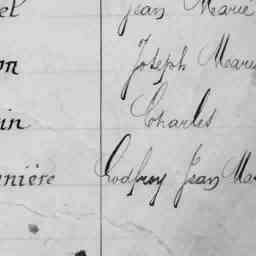 el Jean Marie
on Joseph Marie
in Charles
nière Godfroy Jean Mar